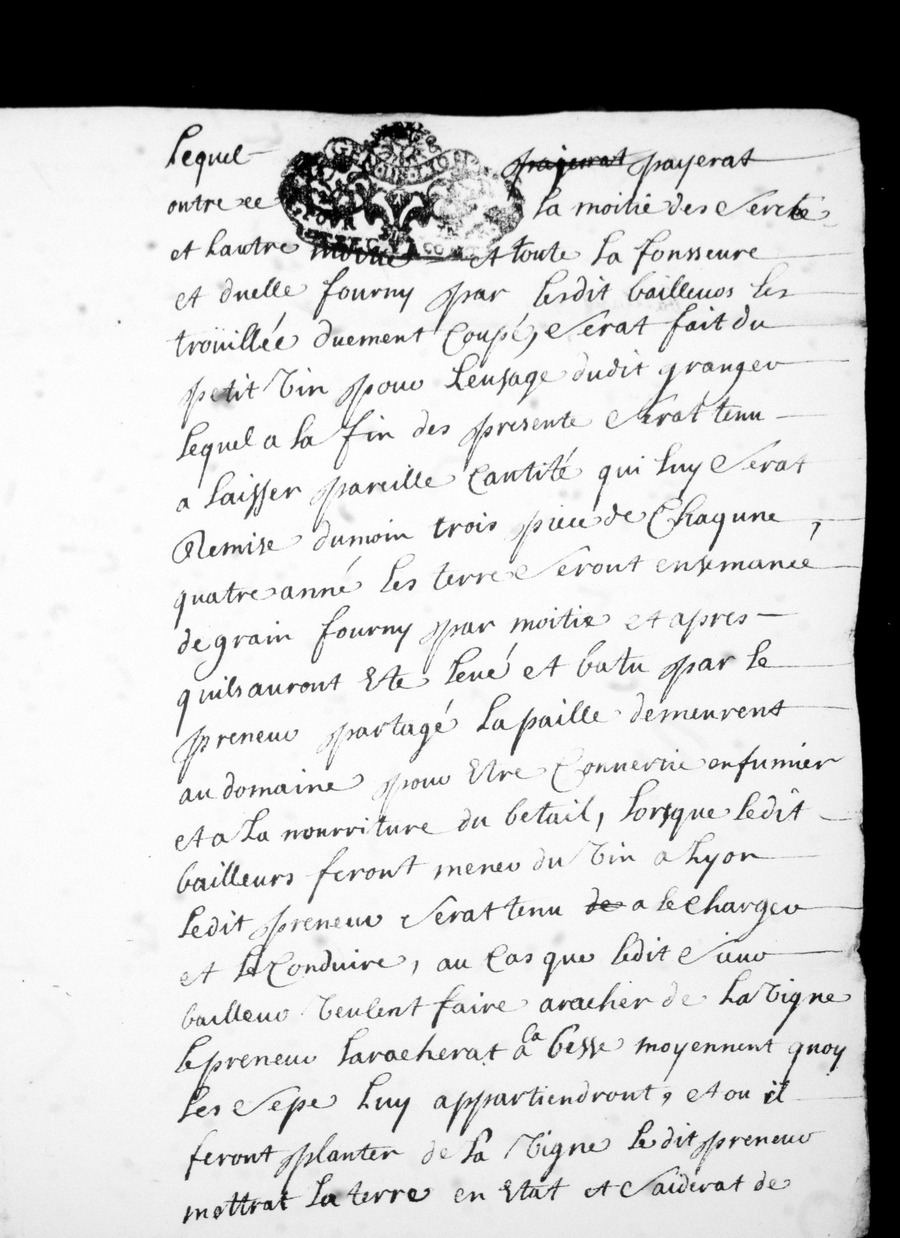 Lequel payerat payerat
outre ce la moitié des Sercle
et Lautre moitié et toute La fonsseure
et duelle fourny par lesdit bailleurs les
troüillée duement Coupé, Serat fait du
petit Vin pour Leusage dudit granger
Lequel a La fin des presente Serat tenu
a Laisser pareille Cantité qui Luy Serat
Remise dumoin trois piece de Chaqune,
quatre anné Les terre Seront ensemancé
de grain fourny par moitie et apres
quils auront Eté Levé et batu par le
preneur partagé La paille demeurent
au domaine pour Etre Convertie en fumier
et a La nourriture du betail, Lorsque Ledit
bailleurs feront mener du Vin a Lyon
Ledit preneur Serat tenu de a le Charger
et Le Conduire, au Cas que Ledit Sieur
bailleur Veulent faire aracher de La Vigne
le preneur Laracherat a la besse moyennent quoy
Les Sepe Luy appartiendront, et ou il
feront planter de La Vigne Ledit preneur
mettrat La terre en Etat et Saiderat de